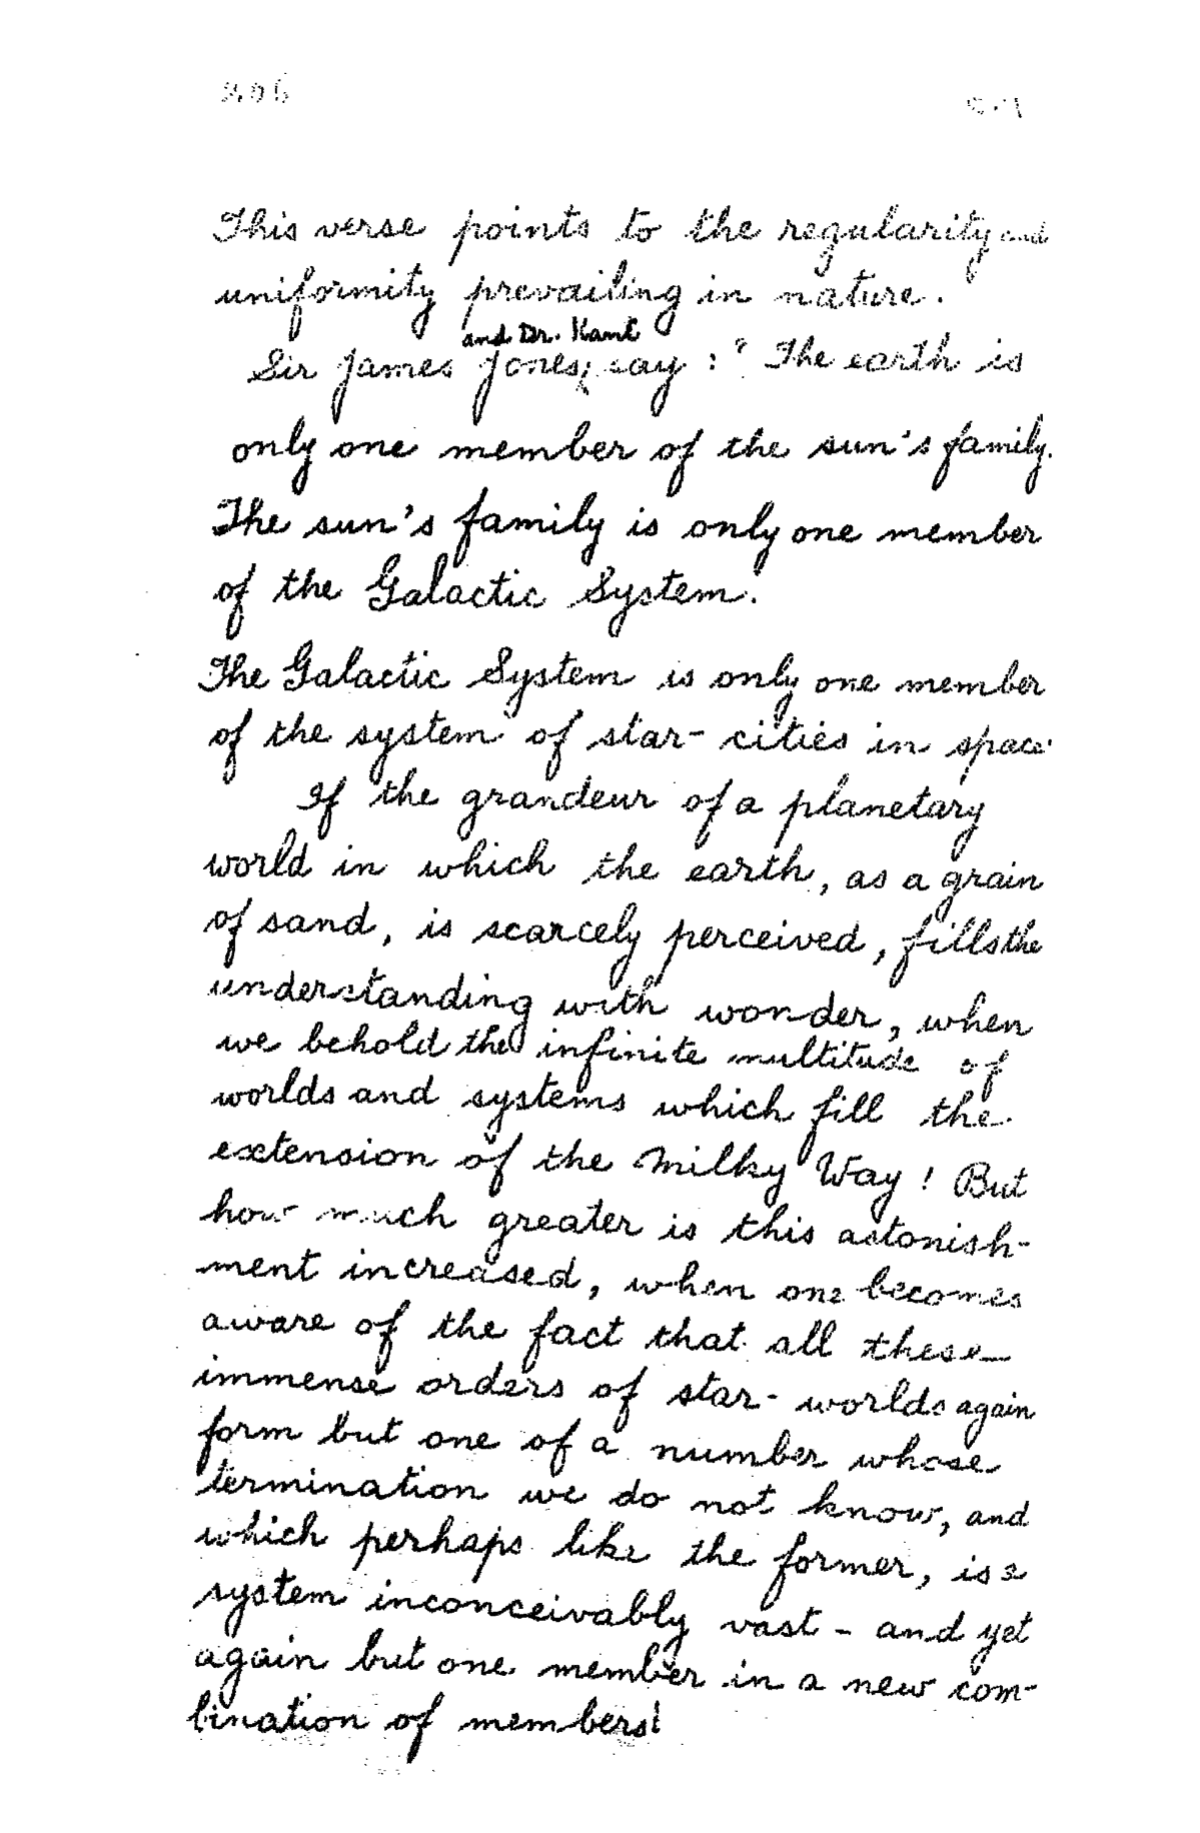 206
This verse points to the regularity and
uniformity prevailing in nature.
and Dr. Kant
Sir James Jones, say : "The earth is
only one member of the sun's family.
The sun's family is only one member
of the Galactic System.
The Galactic System is only one member
of the system of star-cities in space.
If the grandeur of a planetary
world in which the earth, as a grain
of sand, is scarcely perceived, fills the
understanding with wonder, when
we behold the infinite multitude of
worlds and systems which fill the
extension of the Milky Way! But
how much greater is this astonish-
ment increased, when one becomes
aware of the fact that all these
immense orders of star-worlds again
form but one of a number whose
termination we do not know, and
which perhaps like the former, is a
system inconceivably vast - and yet
again but one member in a new com-
bination of members!